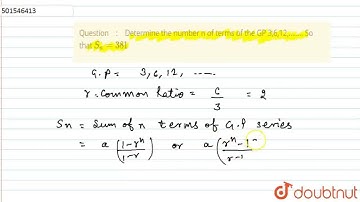 501546413
Question : Determine the number n of terms of the GP 3,6,12,...... So
that Sₙ = 381
G.P = 3, 6, 12, -----
r = Common Ratio = 6/3 = 2
Sn = Sum of n terms of G.P series
= a (1-rⁿ/1-r) or a (rⁿ-1
doubtnut